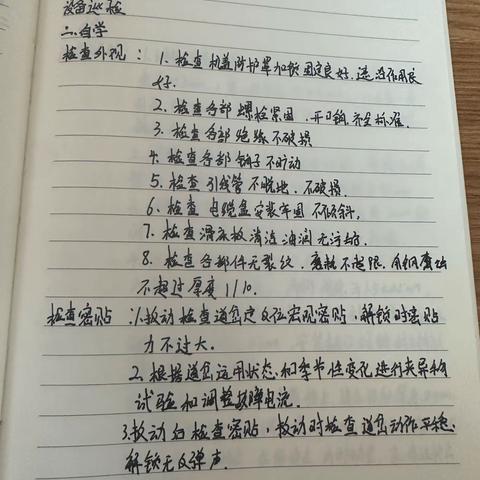 设备巡检
二.自学
检查外观：1. 检查机盖防护罩加锁固定良好,遮渣作用良
好.
2. 检查各部螺栓紧固,开口销齐全标准.
3. 检查各部绝缘不破损
4. 检查各部销子不旷动
5. 检查引线管不脱出,不破损.
6. 检查电缆盒安装牢固不倾斜.
7. 检查滑床板清洁油润无污垢.
8. 检查各部件无裂纹,磨耗不超限,
不超过厚度1/10.
检查密贴：1.扳动检查道岔定反位宏观密贴,解锁时密贴
力不过大.
2. 根据道岔运用状态和季节性变化进行夹异物
试验和调整故障电流.
3.扳动后检查密贴,扳动时检查道岔动作平稳,
解锁无反弹声.